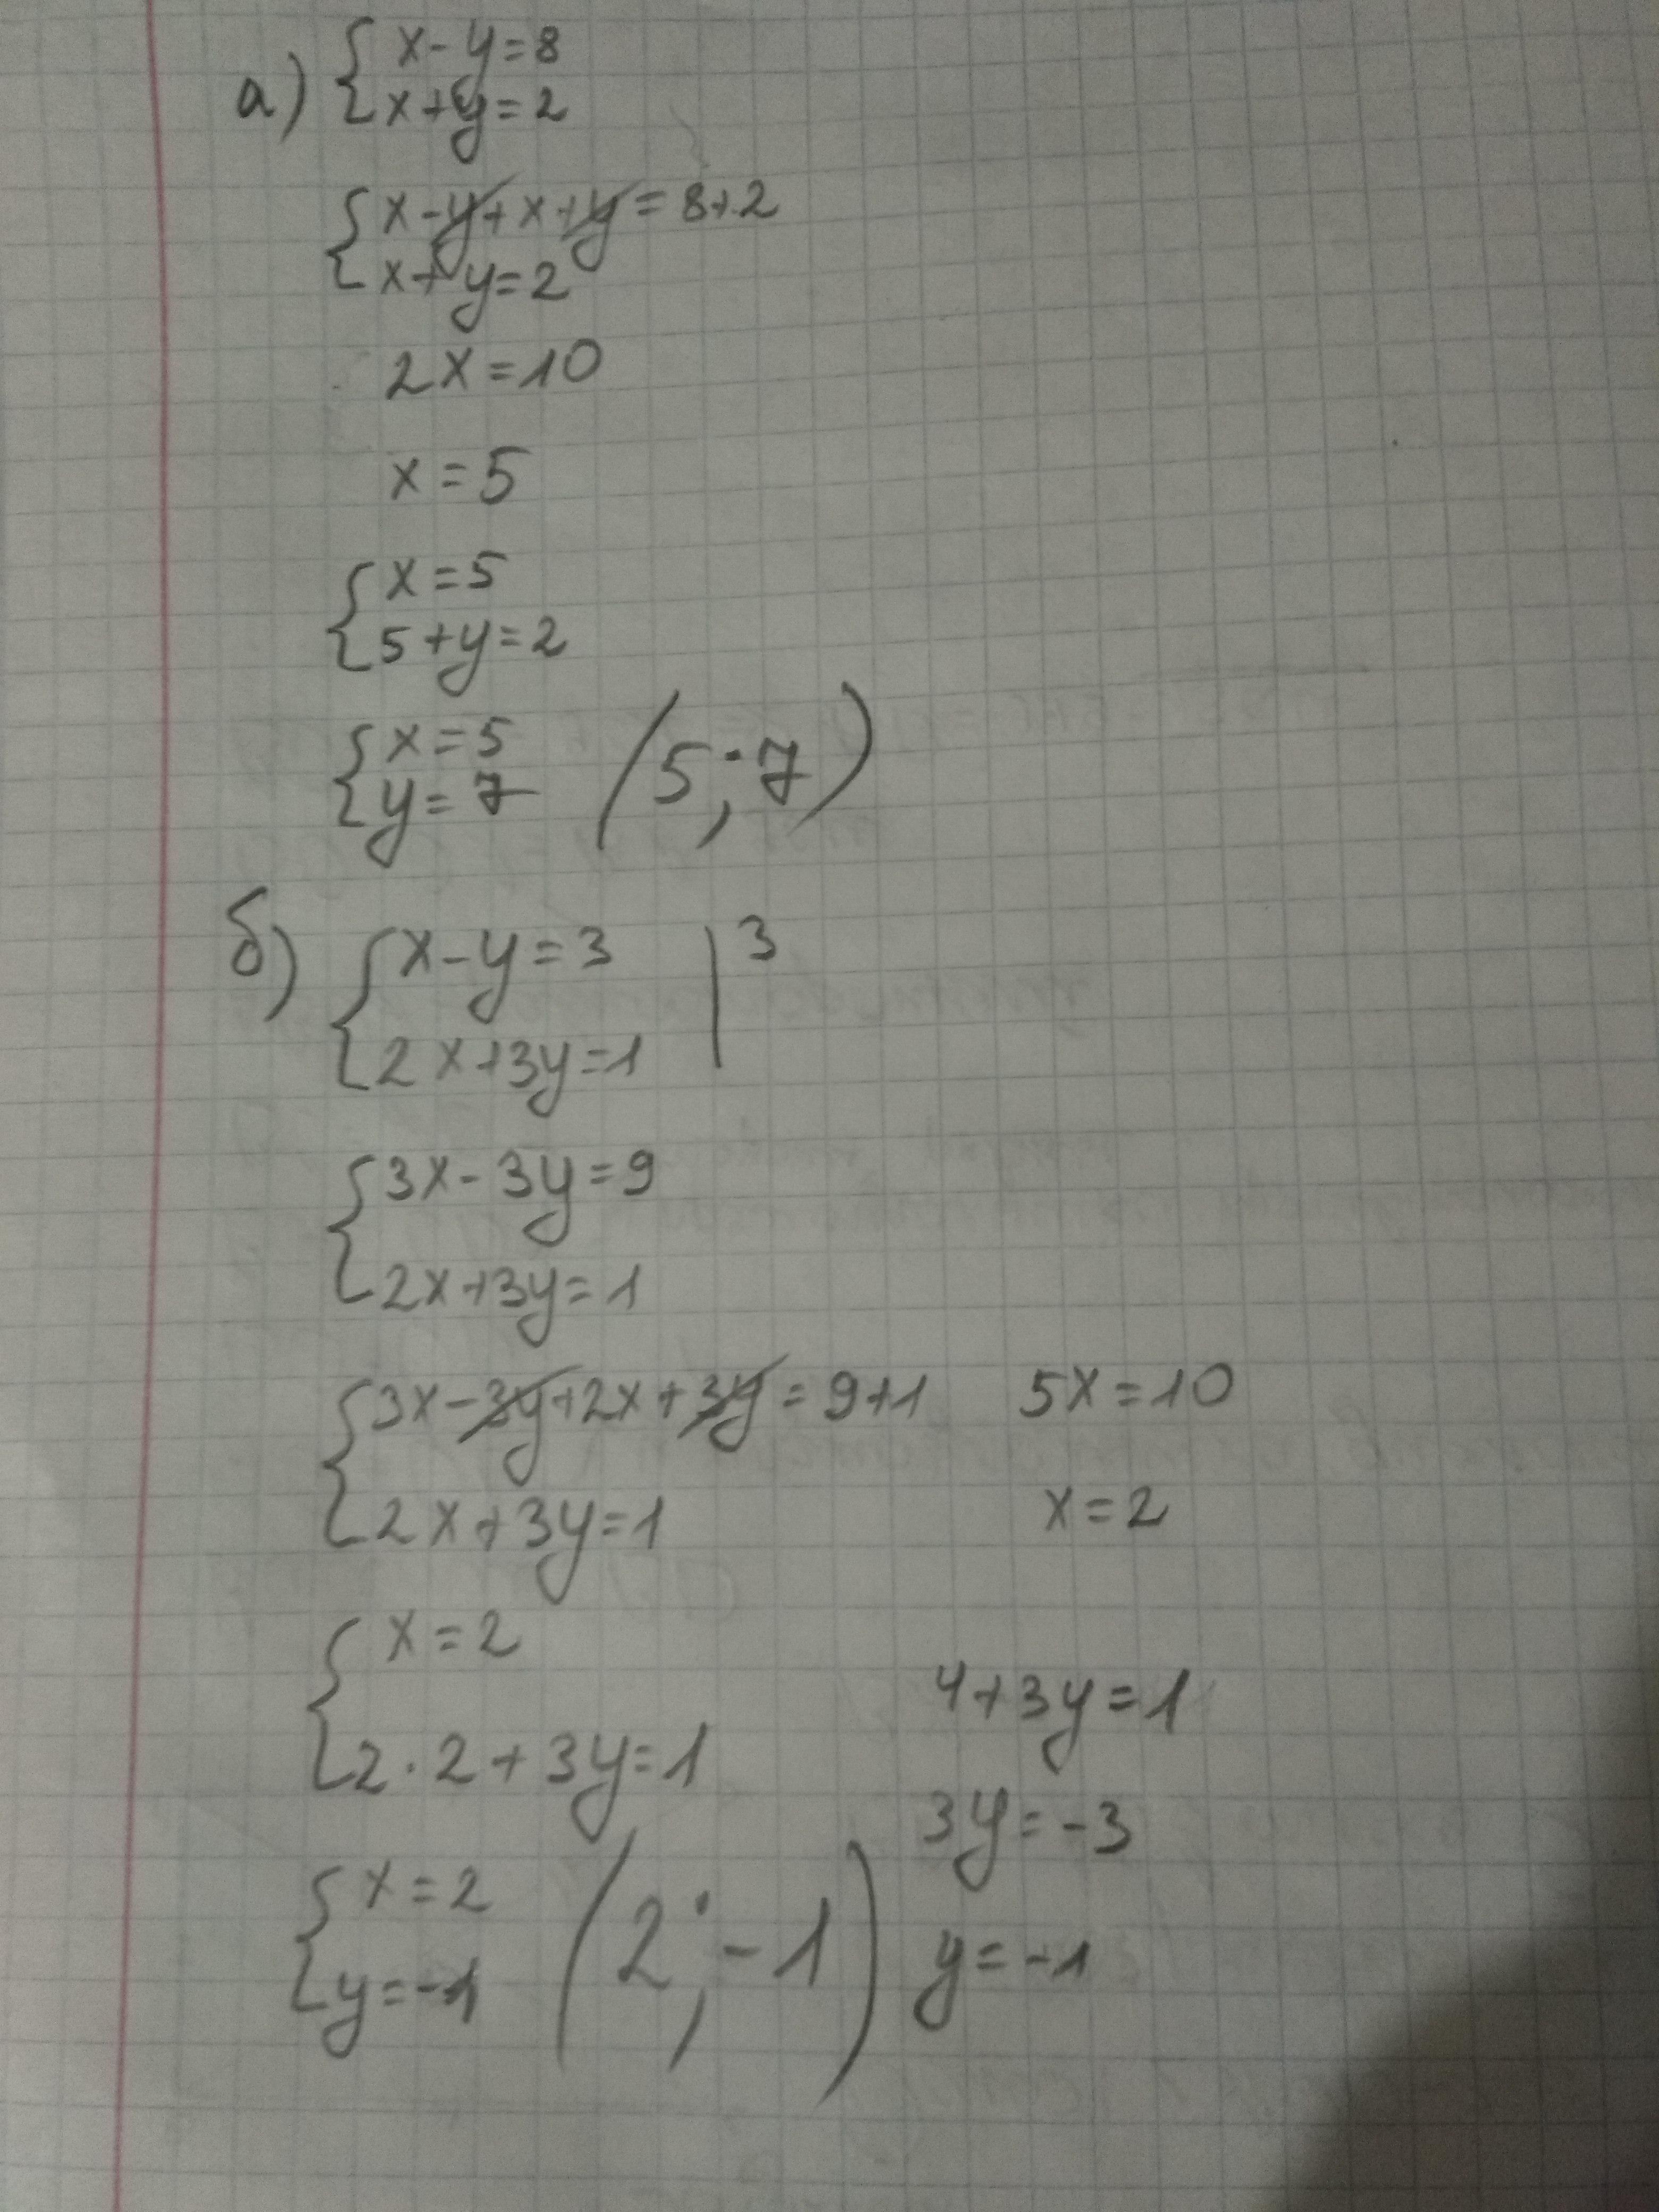 а) { x - y = 8
x + y = 2
{ x - y + x + y = 8 + 2
x + y = 2
2x = 10
x = 5
{ x = 5
5 + y = 2
{ x = 5
y = 7 (5; 7)
б) { x - y = 3 | 3
2x + 3y = 1
{ 3x - 3y = 9
2x + 3y = 1
{ 3x - 3y + 2x + 3y = 9 + 1 5x = 10
2x + 3y = 1 x = 2
{ x = 2
2 · 2 + 3y = 1 4 + 3y = 1
3y = -3
{ x = 2
y = -1 (2; -1) y = -1